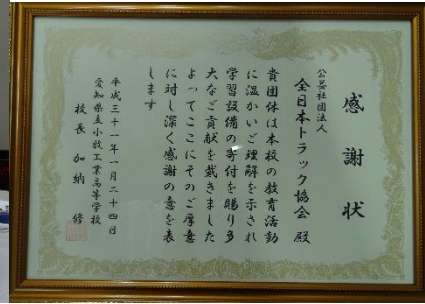 感謝状
公益社団法人
全日本トラック協会 殿
貴団体は本校の教育活動
に温かいご理解を示され
学習設備の寄付を賜り多
大なご貢献を戴きました
よってここにそのご厚意
に対し深く感謝の意を表
します
平成三十一年一月二十四日
愛知県立小牧工業高等学校
校長 加納 修